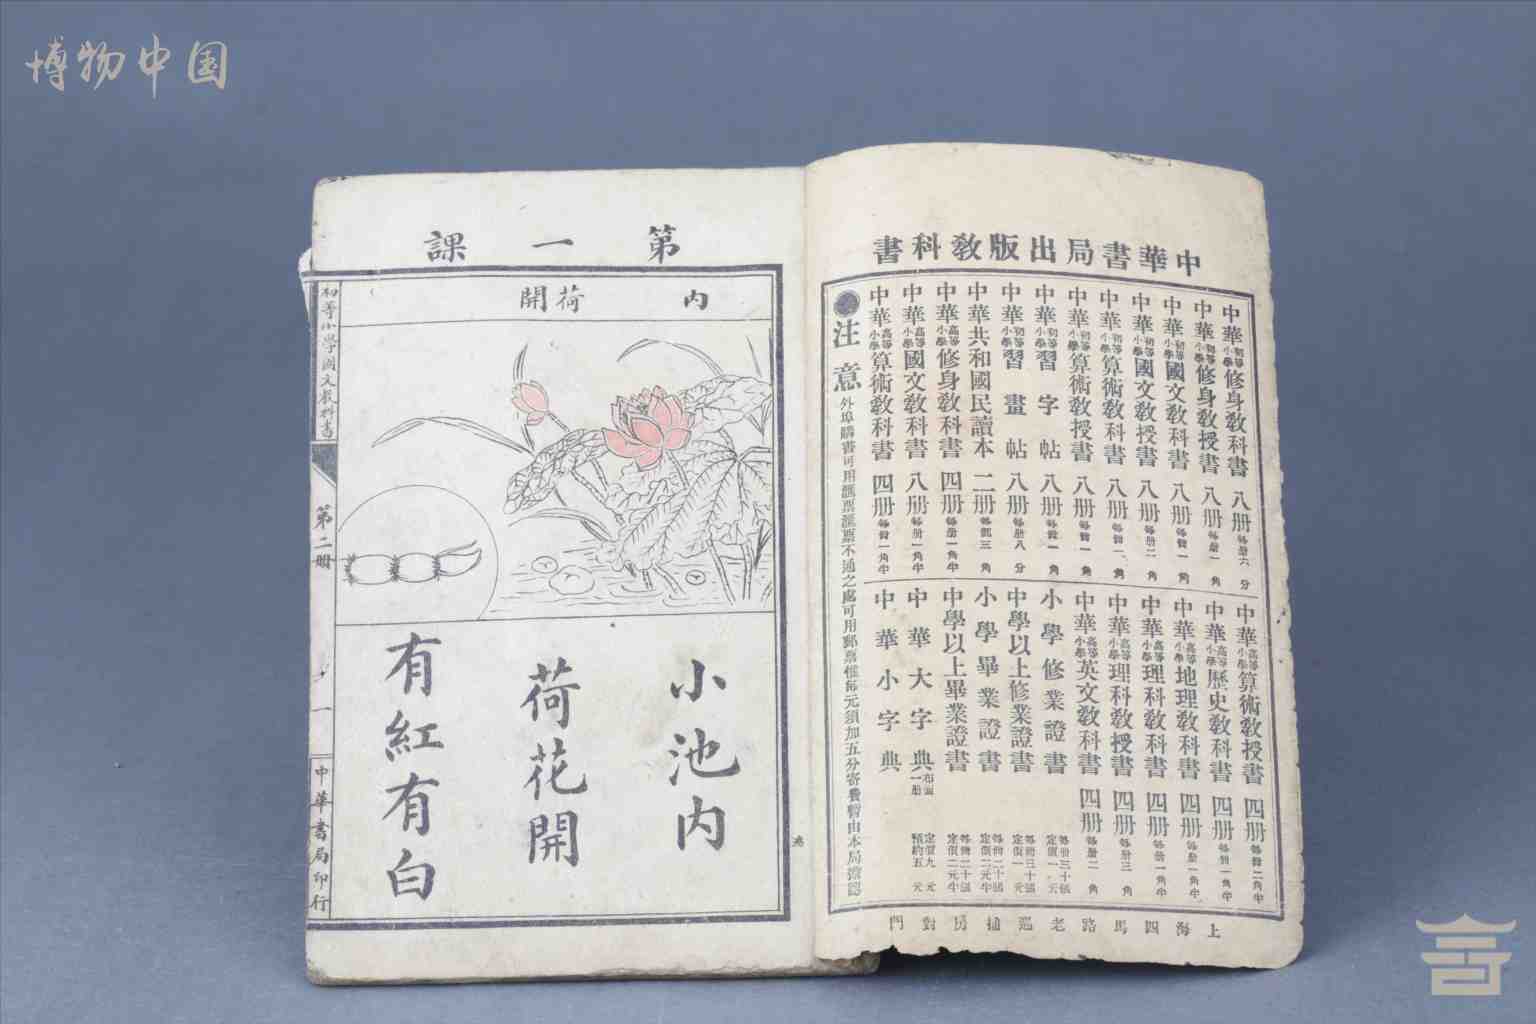 博物中国
中華書局出版教科書
中華初等小學修身教科書 八册 每册六分
中華初等小學修身教授書 八册 每册一角
中華初等小學國文教科書 八册 每册一角
中華初等小學國文教授書 八册 每册二角
中華初等小學算術教科書 八册 每册一角
中華初等小學算術教授書 八册 每册一角
中華初等小學習字帖 八册 每册一角
中華初等小學習畫帖 八册 每册八分
中華共和國民讀本 二册 每册三角
中華高等小學修身教科書 四册 每册一角半
中華高等小學國文教科書 八册 每册一角半
中華高等小學算術教科書 四册 每册一角半
中華高等小學算術教授書 四册 每册二角半
中華高等小學歷史教科書 四册 每册一角半
中華高等小學地理教科書 四册 每册一角半
中華高等小學理科教科書 四册 每册一角半
中華高等小學理科教授書 四册 每册三角
中華高等小學英文教科書 四册 每册二角
小學修業證書 每册三十張 定價一元
中學以上修業證書 每册三十張 定價一元
小學畢業證書 每册二十張 定價二元半
中學以上畢業證書 每册二十張 定價二元半
中華大字典 布面一册 定價九元 預約五元
中華小字典
注意 外埠購書可用匯票匯票不通之處可用郵票惟每元須加五分寄費暫由本局擔認
上海四馬路老巡捕房對門
第一課
內 荷開
小池內
荷花開
有紅有白
初等小學國文教科書
第二册
一
中華書局印行